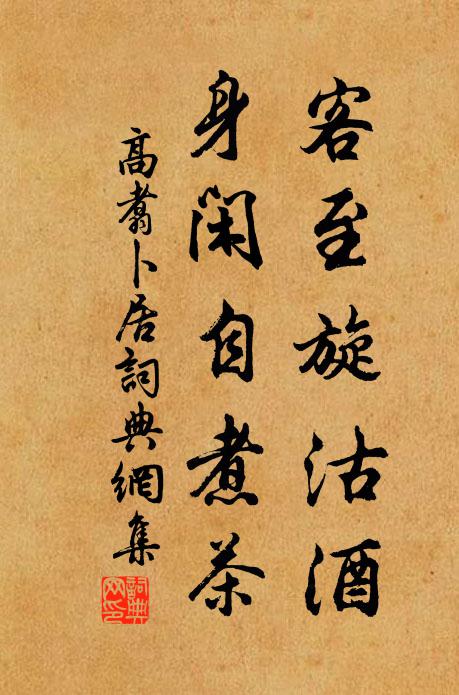 客至旋沽酒
身閑自煮茶
高翥卜居詞典網集
詞典網印